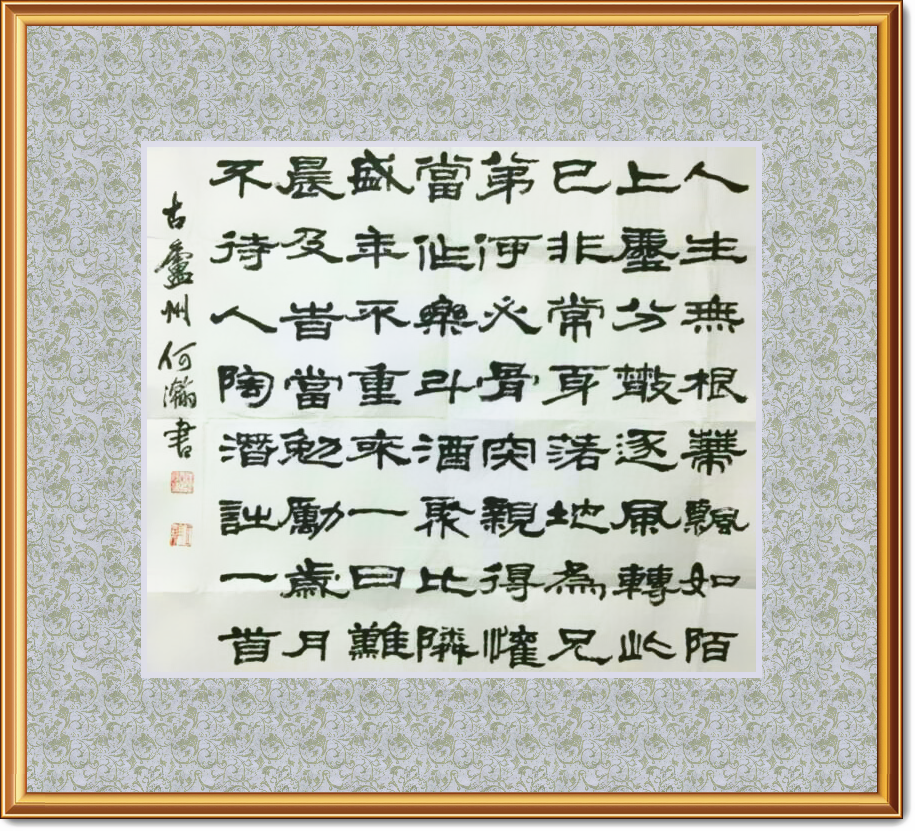 人生無根蔕飄如陌
上塵分散逐風轉此
已非常身落地為兄
第何必骨肉親得懽
當作樂斗酒聚比隣
盛年不重來一日難
晨及旹當勉勵歲月
不待人陶潛詩一首
古廬州何瀚書